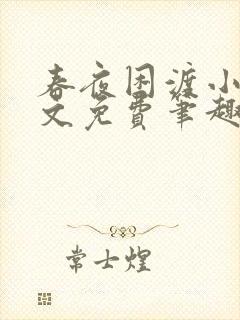 春夜困渡小
文免费笔趣
常士煌